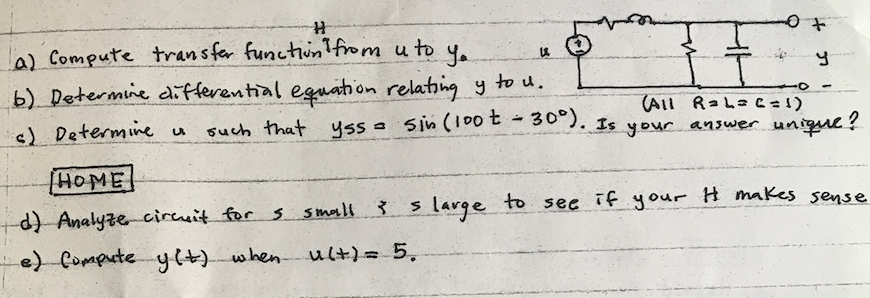 H
a) Compute transfer function from u to y.
u + + y -
b) Determine differential equation relating y to u.
(All R=L=C=1)
c) Determine u such that yss = sin(100t - 30°). Is your answer unique?
HOME
d) Analyze circuit for s small & s large to see if your H makes sense
e) Compute y(t) when u(t) = 5.